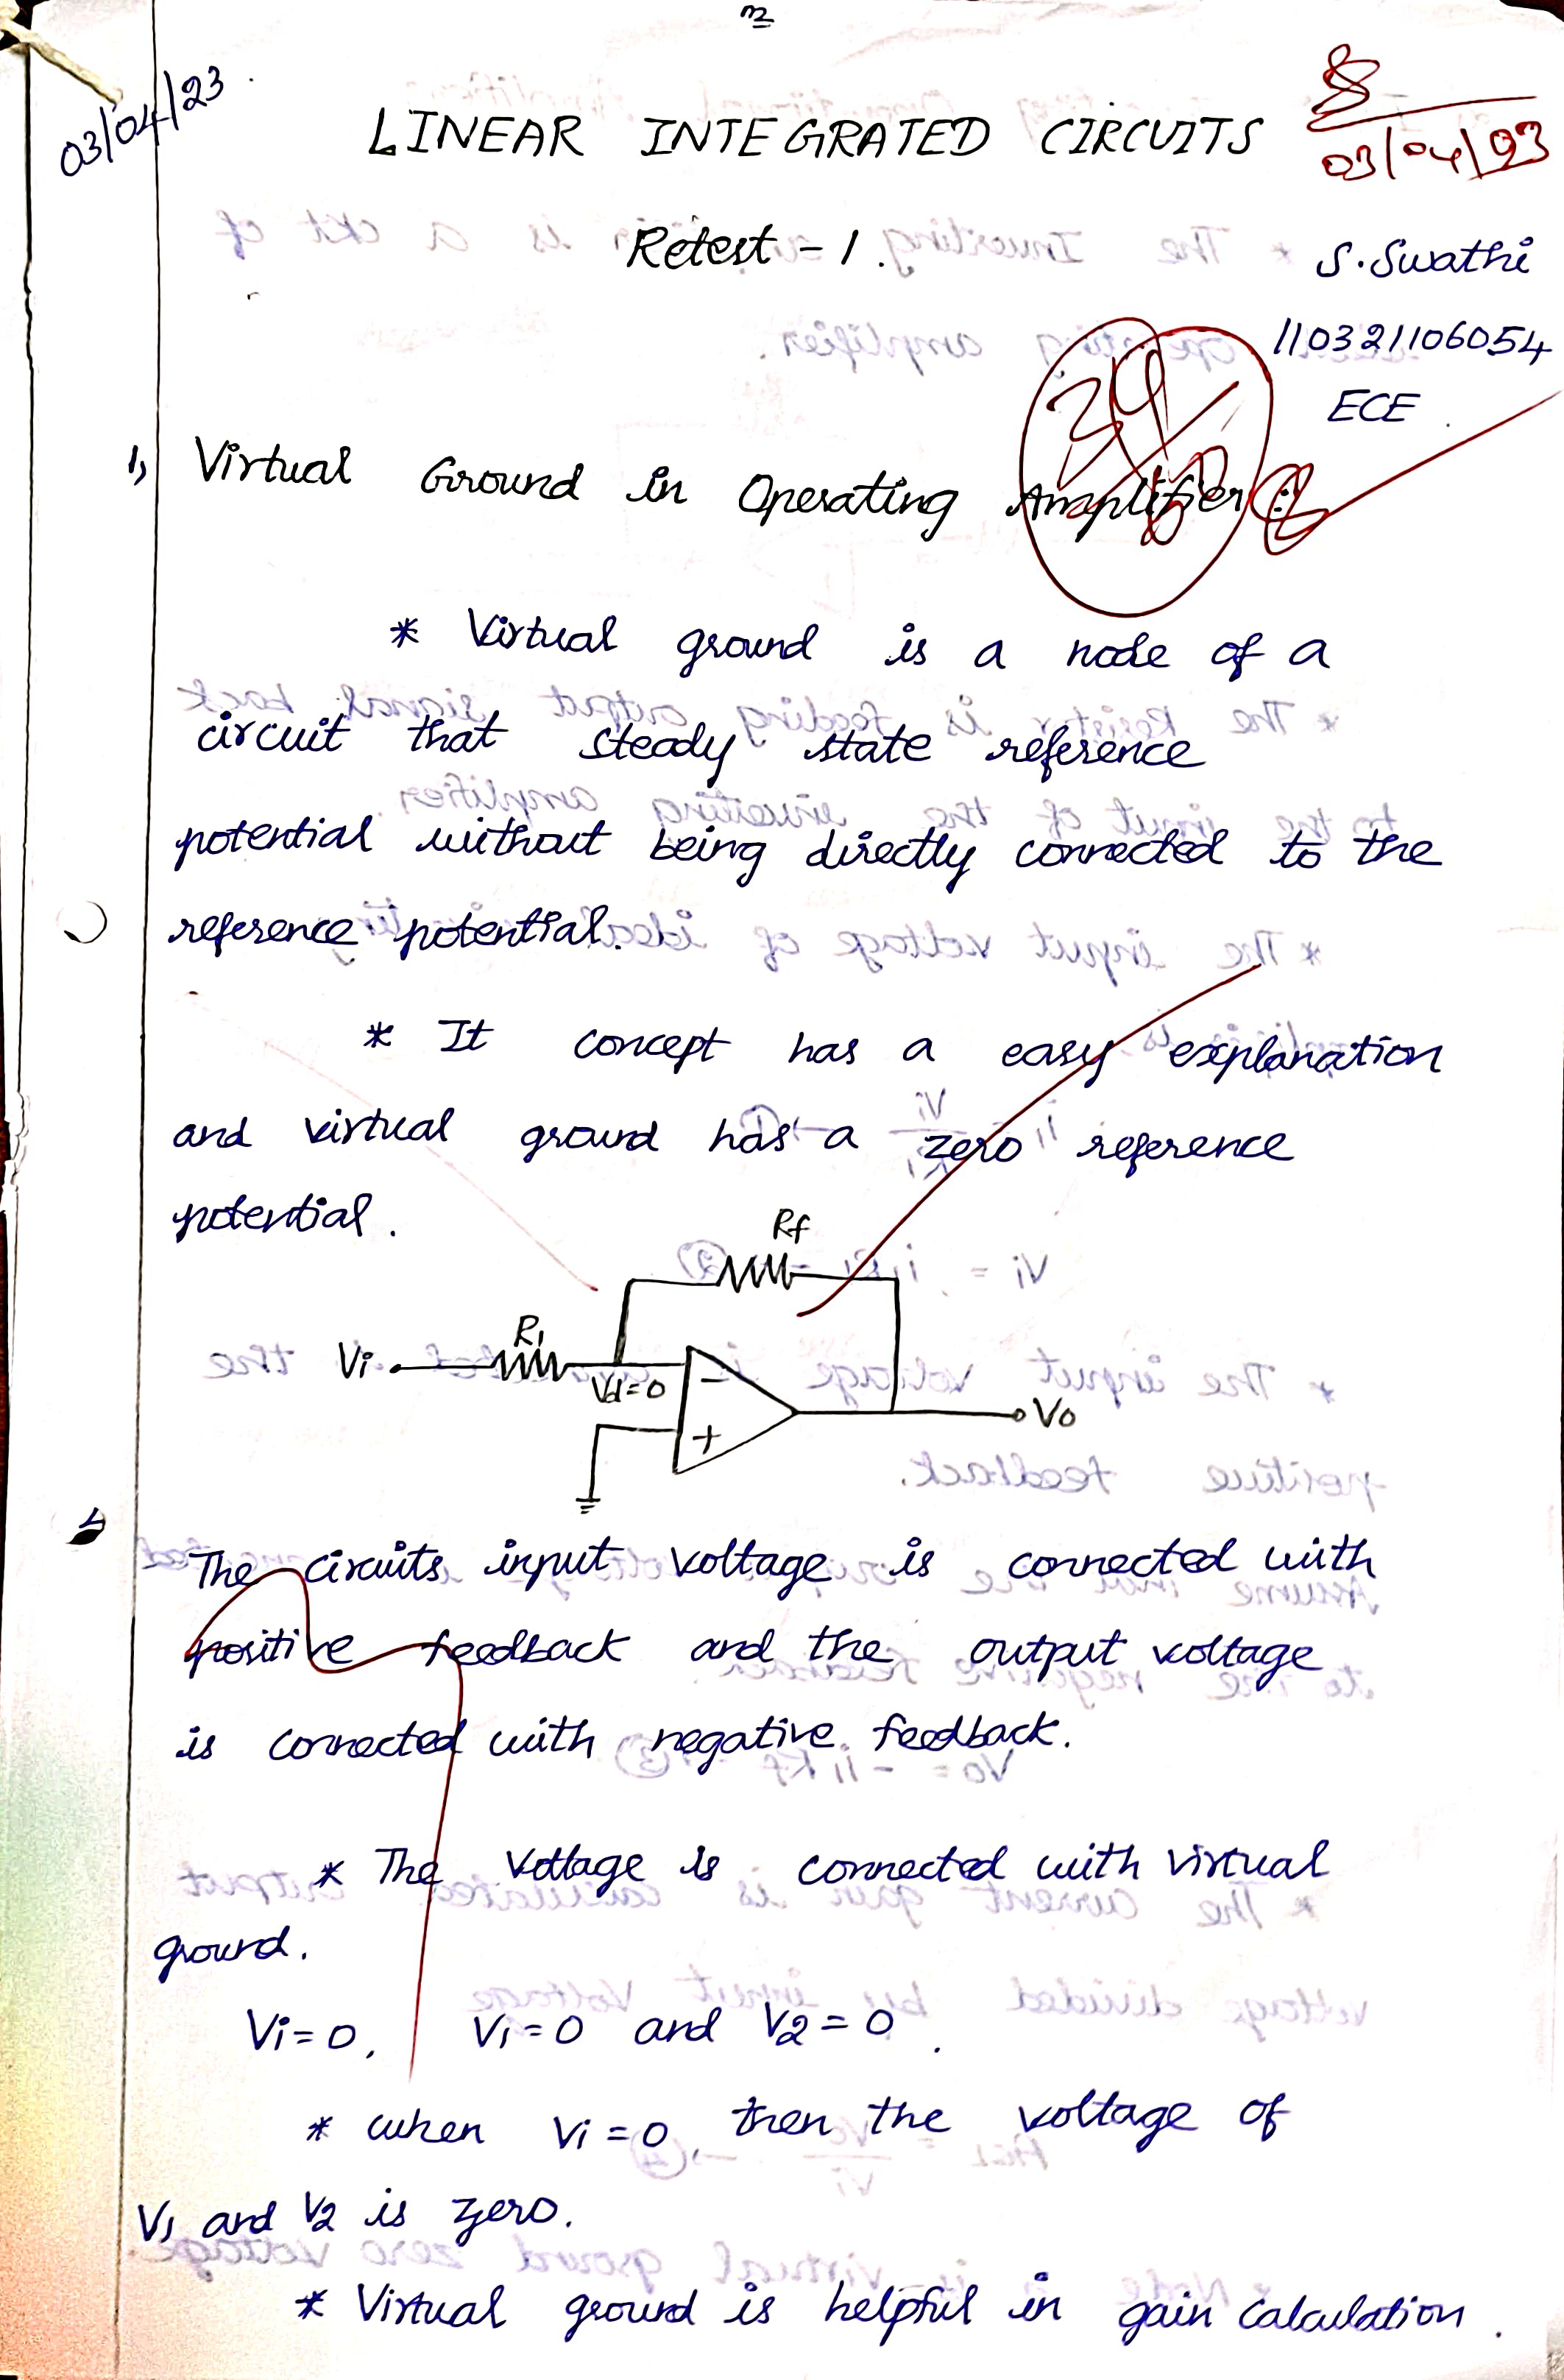 03/04/23
LINEAR INTEGRATED CIRCUITS
03/04/23
Retest - 1.
S. Swathi
110321106054
ECE
1, Virtual Ground in Operating Amplifier :
* Virtual ground is a node of a
circuit that steady state reference
potential without being directly connected to the
reference potential.
* It concept has a easy explanation
and virtual ground has a zero reference
potential.
Rf
R1
Vi
Vd=0
-
+
Vo
The circuits input voltage is connected with
positive feedback and the output voltage
is connected with negative feedback.
* The Voltage is connected with virtual
ground.
Vi=0, V1=0 and V2=0.
* when Vi=0, then the voltage of
V1 and V2 is zero.
* Virtual ground is helpful in gain calculation.